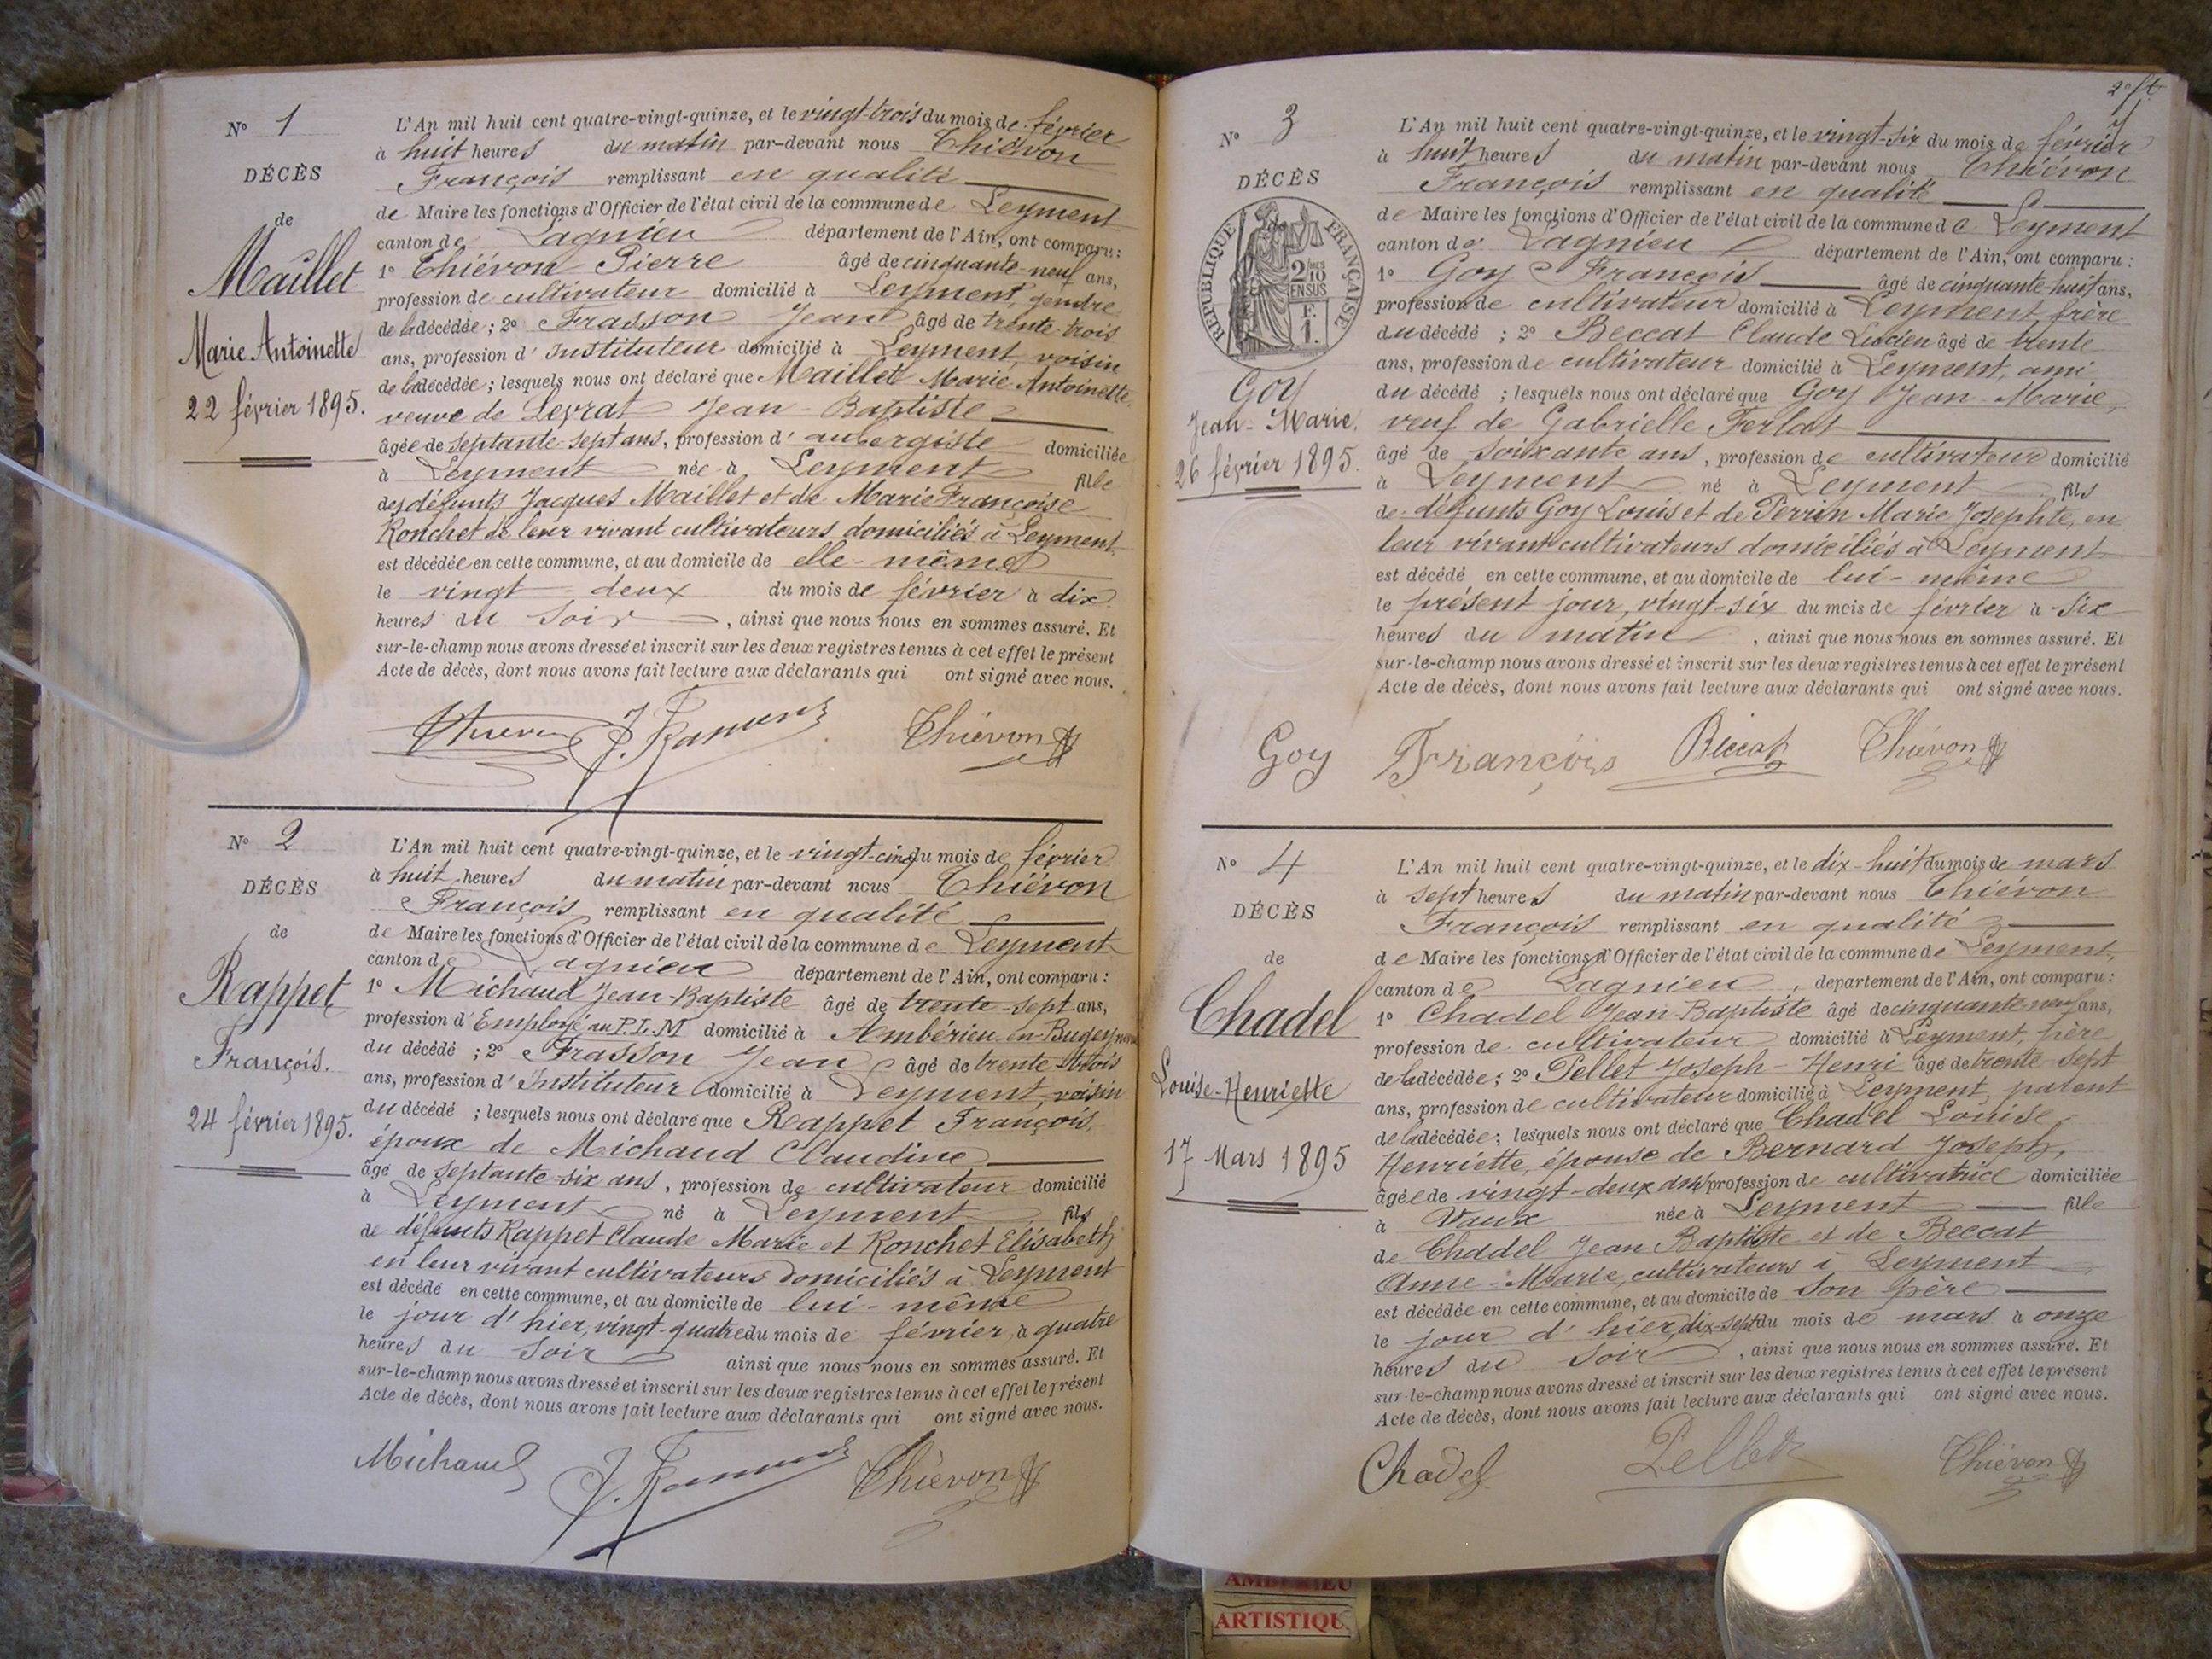 N° 1
DÉCÈS
de
Maillet
Marie Antoinette
22 février 1895.
L'An mil huit cent quatre-vingt-quinze, et le vingt-trois du mois de février
à huit heures du matin par-devant nous Thiévon
François remplissant en qualité
de Maire les fonctions d'Officier de l'état civil de la commune de Leyment
canton de Lagnieu département de l'Ain, ont comparu :
1° Thiévon Pierre âgé de cinquante-neuf ans,
profession de cultivateur domicilié à Leyment, gendre
de la décédée ; 2° Frasson Jean âgé de trente-trois
ans, profession d'Instituteur domicilié à Leyment, voisin
de la décédée ; lesquels nous ont déclaré que Maillet Marie Antoinette,
veuve de Levrat Jean-Baptiste
âgée de septante-sept ans, profession d'aubergiste domiciliée
à Leyment née à Leyment fille
des défunts Jacques Maillet et de Marie Françoise
Ronchet de leur vivant cultivateurs domiciliés à Leyment,
est décédée en cette commune, et au domicile de elle-même
le vingt-deux du mois de février à dix
heures du soir, ainsi que nous nous en sommes assuré. Et
sur-le-champ nous avons dressé et inscrit sur les deux registres tenus à cet effet le présent
Acte de décès, dont nous avons fait lecture aux déclarants qui ont signé avec nous.
Thiévon
N° 2
DÉCÈS
de
Rappet
François.
24 février 1895.
L'An mil huit cent quatre-vingt-quinze, et le vingt-cinq du mois de février
à huit heures du matin par-devant nous Thiévon
François remplissant en qualité
de Maire les fonctions d'Officier de l'état civil de la commune de Leyment
canton de Lagnieu département de l'Ain, ont comparu :
1° Michaud Jean-Baptiste âgé de trente-sept ans,
profession d'Employé au P.L.M domicilié à Ambérieu-en-Bugey
du décédé ; 2° Frasson Jean âgé de trente-trois
ans, profession d'Instituteur domicilié à Leyment, voisin
du décédé ; lesquels nous ont déclaré que Rappet François,
époux de Michaud Claudine
âgé de septante-six ans, profession de cultivateur domicilié
à Leyment né à Leyment fils
de défunts Rappet Claude Marie et Ronchet Elisabeth
en leur vivant cultivateurs domiciliés à Leyment
est décédé en cette commune, et au domicile de lui-même
le jour d'hier, vingt-quatre du mois de février, à quatre
heures du soir ainsi que nous nous en sommes assuré. Et
sur-le-champ nous avons dressé et inscrit sur les deux registres tenus à cet effet le présent
Acte de décès, dont nous avons fait lecture aux déclarants qui ont signé avec nous.
Michaud Thiévon
N° 3
DÉCÈS
RÉPUBLIQUE FRANÇAISE
2 MES 10
EN SUS
F.
1.
Goy
Jean-Marie.
26 février 1895.
L'An mil huit cent quatre-vingt-quinze, et le vingt-six du mois de février
à huit heures du matin par-devant nous Thiévon
François remplissant en qualité
de Maire les fonctions d'Officier de l'état civil de la commune de Leyment
canton de Lagnieu département de l'Ain, ont comparu :
1° Goy François âgé de cinquante-huit ans,
profession de cultivateur domicilié à Leyment, frère
du décédé ; 2° Beccat Claude Lucien âgé de trente
ans, profession de cultivateur domicilié à Leyment, ami
du décédé ; lesquels nous ont déclaré que Goy Jean-Marie,
veuf de Gabrielle Ferlat
âgé de soixante ans, profession de cultivateur domicilié
à Leyment né à Leyment fils
de défunts Goy Louis et de Perrin Marie Josephte, en
leur vivant cultivateurs domiciliés à Leyment
est décédé en cette commune, et au domicile de lui-même
le présent jour, vingt-six du mois de février à six
heures du matin, ainsi que nous nous en sommes assuré. Et
sur-le-champ nous avons dressé et inscrit sur les deux registres tenus à cet effet le présent
Acte de décès, dont nous avons fait lecture aux déclarants qui ont signé avec nous.
Goy François Beccat Thiévon
N° 4
DÉCÈS
de
Chadel
Louise-Henriette
17 Mars 1895
L'An mil huit cent quatre-vingt-quinze, et le dix-huit du mois de mars
à sept heures du matin par-devant nous Thiévon
François remplissant en qualité
de Maire les fonctions d'Officier de l'état civil de la commune de Leyment,
canton de Lagnieu, département de l'Ain, ont comparu :
1° Chadel Jean-Baptiste âgé de cinquante-neuf ans,
profession de cultivateur domicilié à Leyment, père
de la décédée ; 2° Pellet Joseph-Henri âgé de trente-sept
ans, profession de cultivateur domicilié à Leyment, parent
de la décédée ; lesquels nous ont déclaré que Chadel Louise
Henriette, épouse de Bernard Joseph,
âgée de vingt-deux ans, profession de cultivatrice domiciliée
à Vaux née à Leyment fille
de Chadel Jean Baptiste et de Beccat
Anne-Marie, cultivateurs à Leyment
est décédée en cette commune, et au domicile de son père
le jour d'hier, dix-sept du mois de mars à onze
heures du soir, ainsi que nous nous en sommes assuré. Et
sur-le-champ nous avons dressé et inscrit sur les deux registres tenus à cet effet le présent
Acte de décès, dont nous avons fait lecture aux déclarants qui ont signé avec nous.
Chadel Pellet Thiévon
AMBERIEU
ARTISTIQU